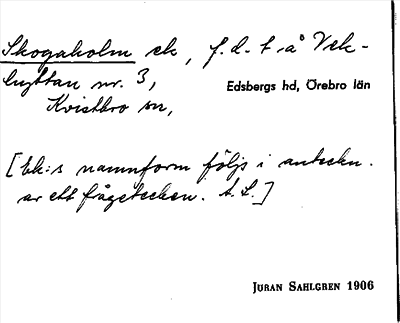 Skogaholm ek, f.d. t. å Vek-
hyttan nr. 3,
Edsbergs hd, Örebro län
Kvistbro sn,
[bk:s namnform följs i anteckn.
av ett frågetecken. A.L.]
JÖRAN SAHLGREN 1906